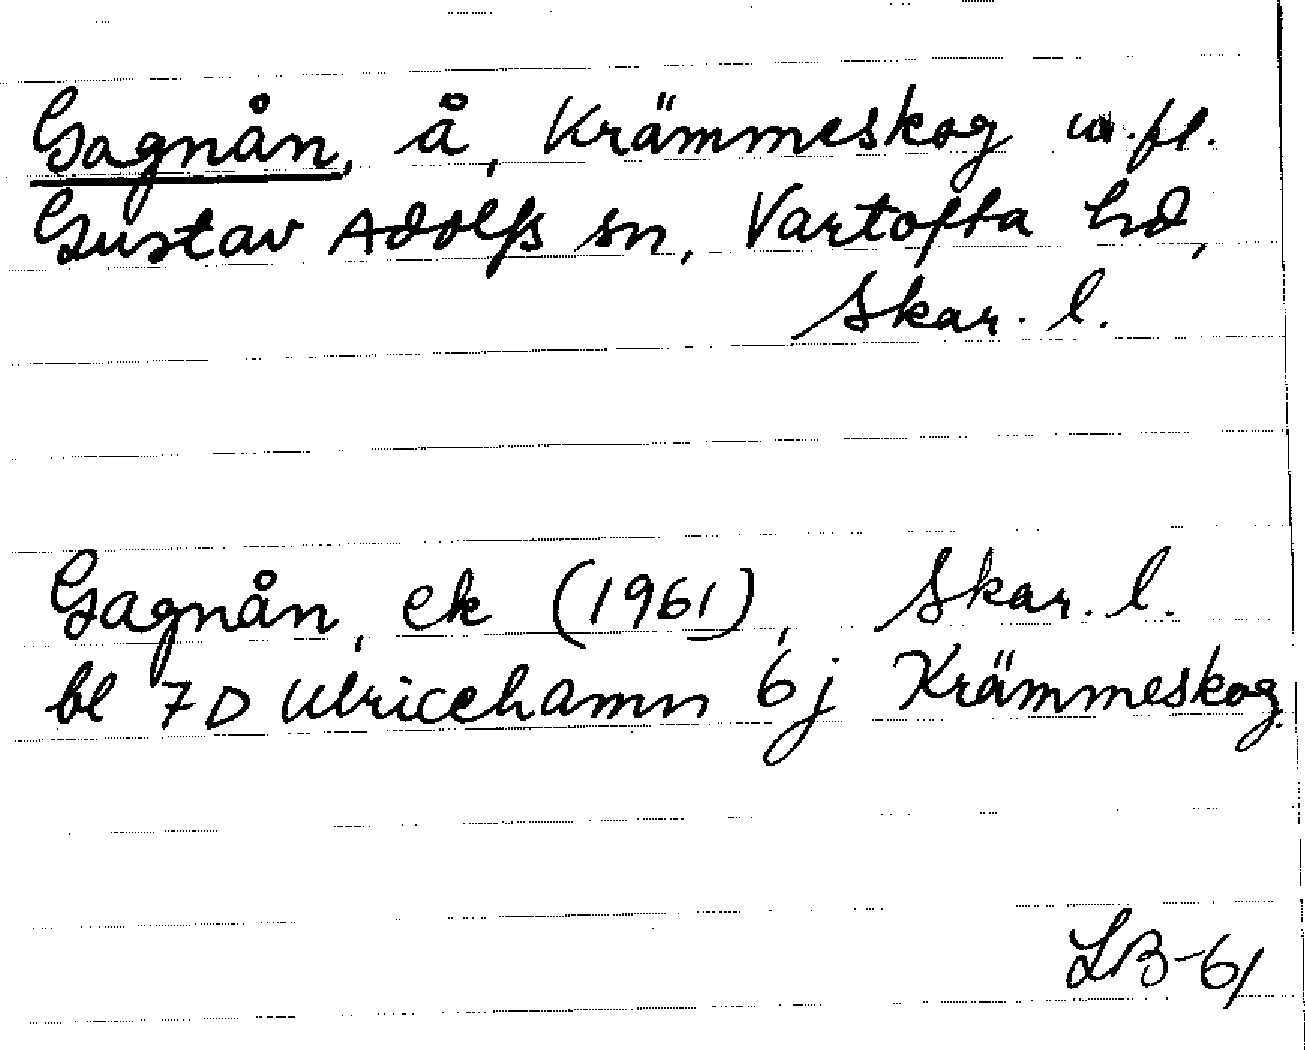 Gagnån, å, Krämmeskog m.fl.
Gustav Adolfs sn, Vartofta hd,
Skar. l.
Gagnån, ek (1961), Skar. l.
bl 7D Ulricehamn 6j Krämmeskog.
LB-61